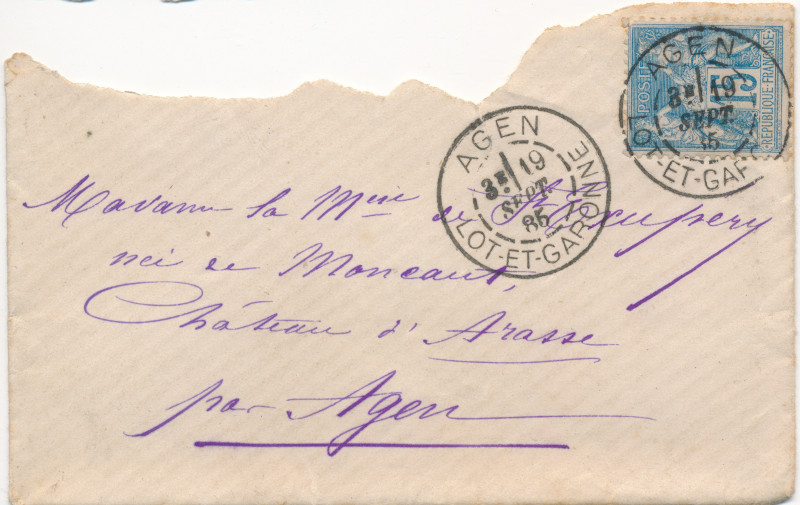 POSTES
15
RÉPUBLIQUE FRANÇAISE
AGEN
3E 19
SEPT.
85
LOT-ET-GARONNE
AGEN
3E 19
SEPT.
85
LOT-ET-GAR
Madame la Mise de St Exupery
née de Moncaut,
Château d'Arasse
par Agen